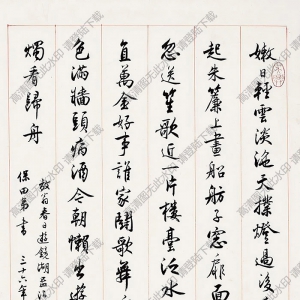 嫩日輕雲淡沱天撲燈過後
起朱簾上畫船舫子窓扉面
忽送笙歌近一片樓臺泛水
直萬金好事誰家鬪歌舞
色滿牆頭病酒今朝懶出遊
燭看歸舟
放翁春日遊鏡湖
保田弟書 三十六年